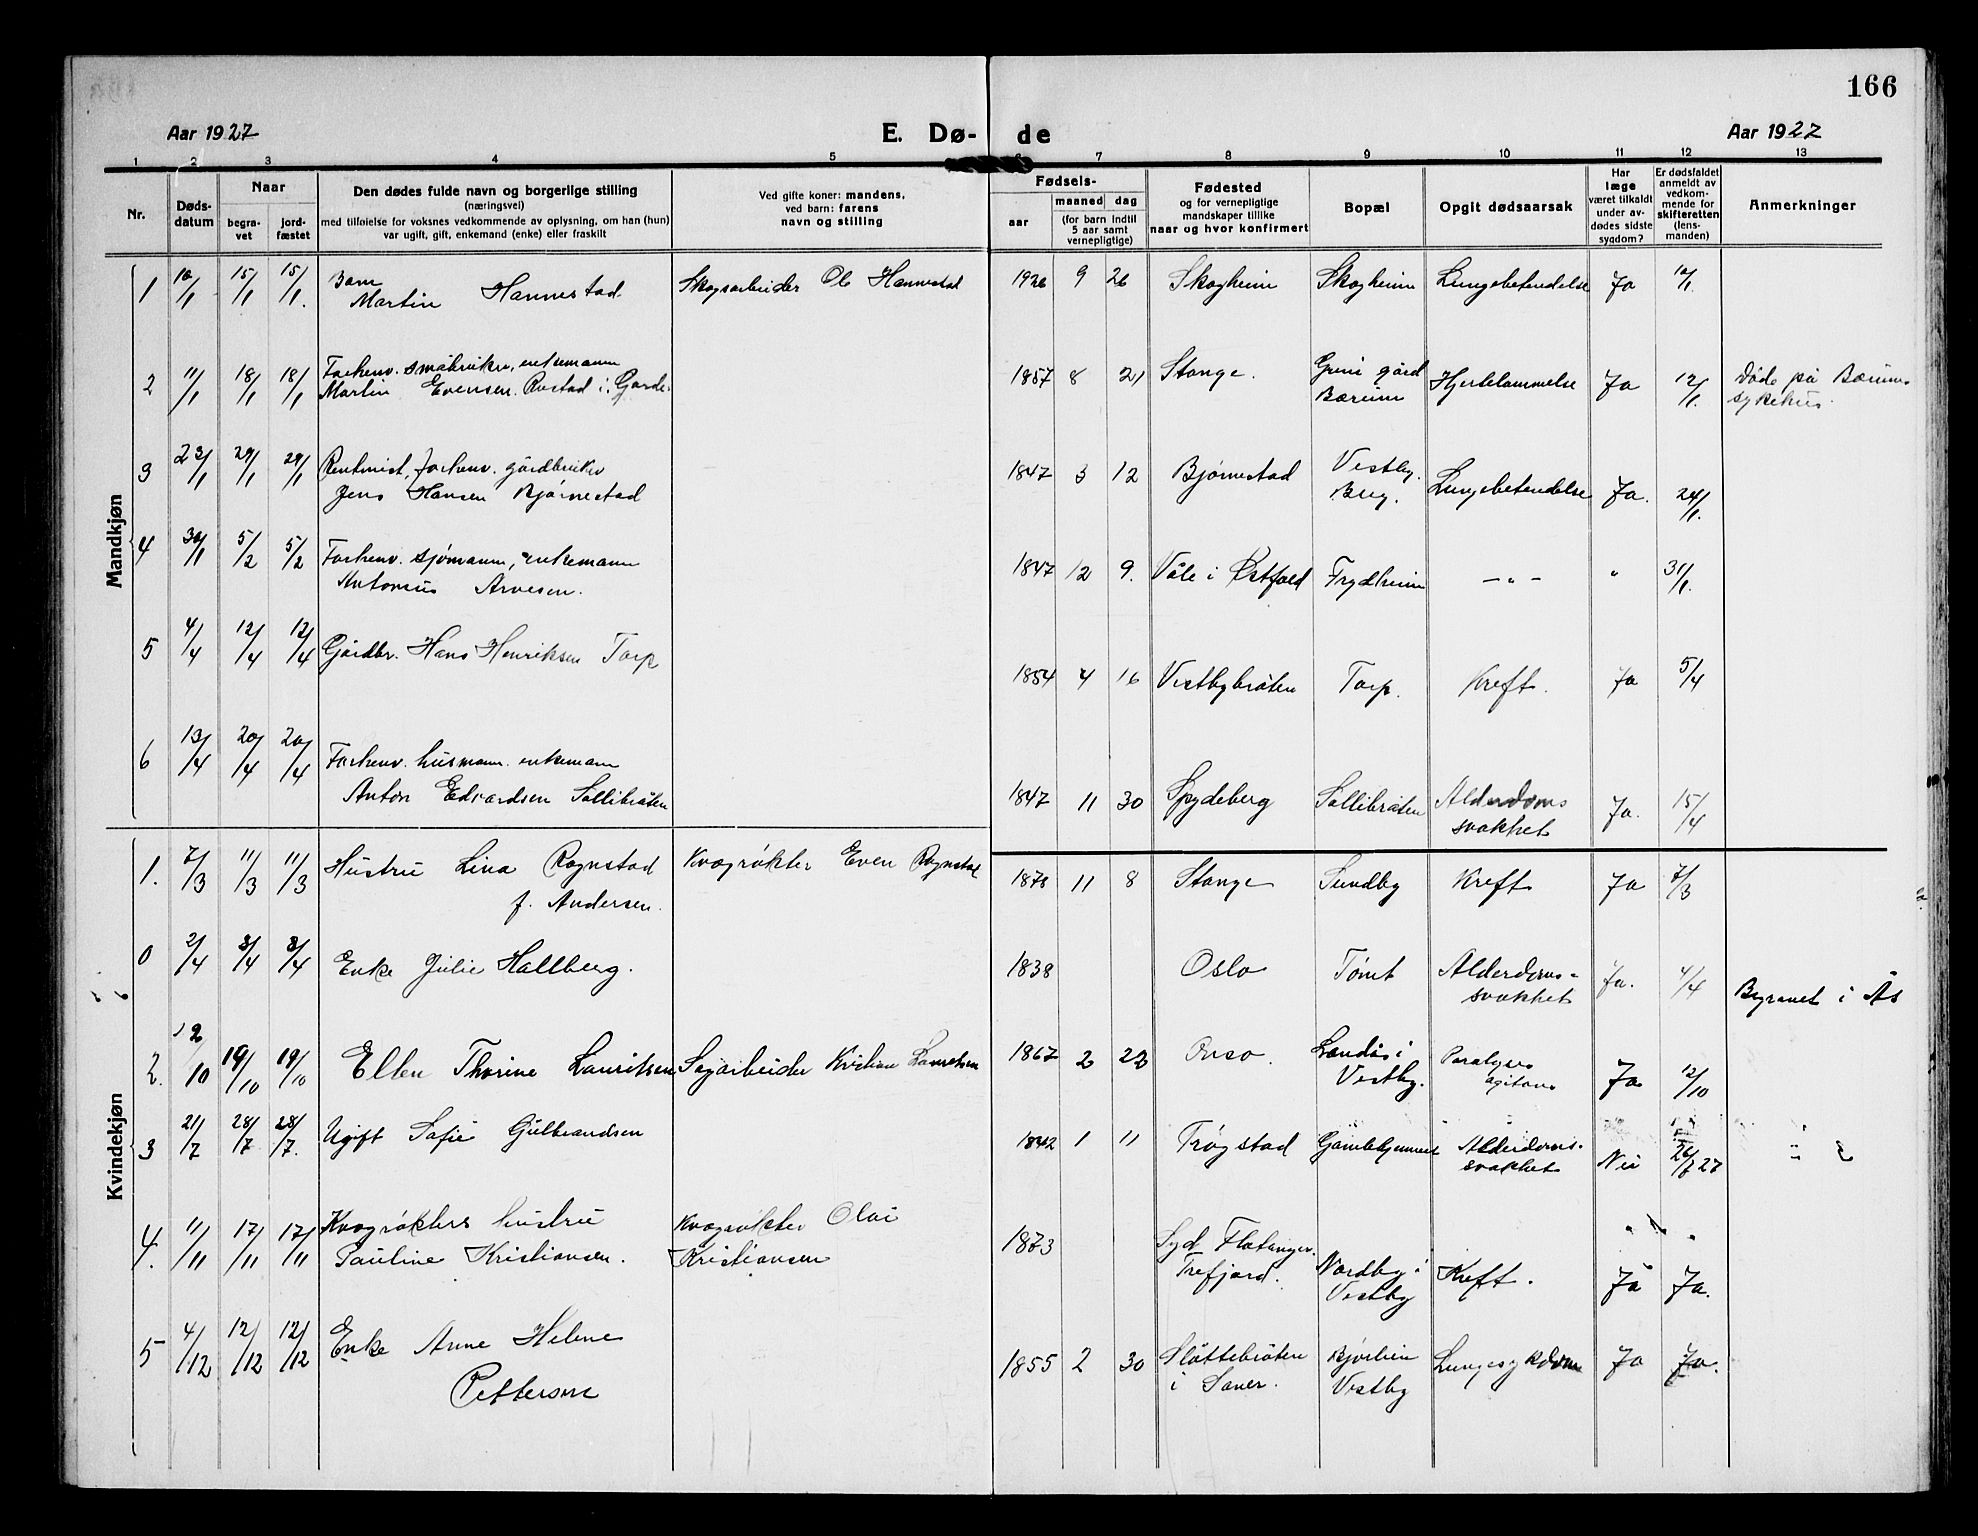 166
Aar 1927
E. Dø- de
Aar 1927
1 2 3 4 5 6 7 8 9 10 11 12 13
Nr.
Døds-
datum
Naar
begra-
vet
jord-
fæstet
Den dødes fulde navn og borgerlige stilling
(næringsvei)
med tilføielse for voksnes vedkommende av oplysning, om han (hun)
var ugift, gift, enkemand (enke) eller fraskilt
Ved gifte koner: mandens,
ved barn: farens
navn og stilling
Fødsels-
aar
maaned dag
(for barn indtil
5 aar samt
vernepligtige)
Fødested
og for vernepligtige
mandskaper tillike
naar og hvor konfirmert
Bopæl
Opgit dødsaarsak
Har
læge
været tilkaldt
under av-
dødes sidste
sygdom?
Er dødsfaldet
anmeldt av
vedkom-
mende for
skifteretten
(lens-
manden)
Anmerkninger
Mandkjøn
1 10/1 15/1 15/1. Barn
Martin Hannestad. Skogsarbeider Ole Hannestad 1926 9 26 Skogheim Skogheim Lungebetendelse Ja 12/1.
2 11/1 18/1 18/1 Forhenv. småbruker, enkemann
Martin Evensen Rustad i Garder. 1857 8 21 Stange. Grini gård
Bærum Hjertelammelse Ja 12/1. Døde på Bærums
sykehus.
3 23/1 29/1 29/1 Rentenist, forhenv. gårdbruker
Jens Hansen Bjørnestad 1847 3 12 Bjørnestad Vestby.
Berg. Lungebetendelse Ja. 24/1.
4 30/1 5/2 5/2 Forhenv. sjømann, enkemann
Antonius Arvesen. 1847 12 9. Våle i Østfold Frydheim — " — " 31/1.
5 4/4 12/4 12/4 Gårdbr. Hans Henriksen Torp 1854 4 16 Vestbybråten Torp. Kreft. Ja 5/4
6 13/4 20/4 20/4 Forhenv. husmann. enkemann
Anton Edvardsen Sollibråten 1847 11 30 Spydeberg Sollibråten Alderdoms
svakhet Ja. 15/4
Kvindekjøn
1. 7/3 11/3 11/3 Hustru Lina Rognstad
f. Andersen. Kvægrøkter Even Rognstad 1878 11 8 Stange Sundby Kreft Ja 7/3
0 2/4 8/4 8/4 Enke Julie Hallberg. 1838 Oslo Tomt Alderdoms-
svakhet Ja. 4/4 Begravet i Ås
2. 12/10 19/10 19/10 Ellen Thorine Lauritsen Sagarbeider Kristian Lauritsen 1867 2 23 Onsø. Landås i
Vestby. Paralyses
agitans Ja 12/10
3 21/7 28/7 28/7. Ugift Sofie Gulbrandsen 1842 1 11 Trøgstad Gamlehjemmet Alderdoms-
svakhet Nei 26/7 27
4. 11/11 17/11 17/11 Kvægrøkters hustru
Pauline Kristiansen. Kvægrøkter Olai
Kristiansen 1873 Syd Flatanger.
Nordby i
Vestby Kreft. Ja Ja.
5 4/12 12/12 12/12 Enke Anne Helene
Petterson 1855 2 30 Slåttebråten
i Saner. Bjørheim
Vestby Lungesykdom Ja Ja.